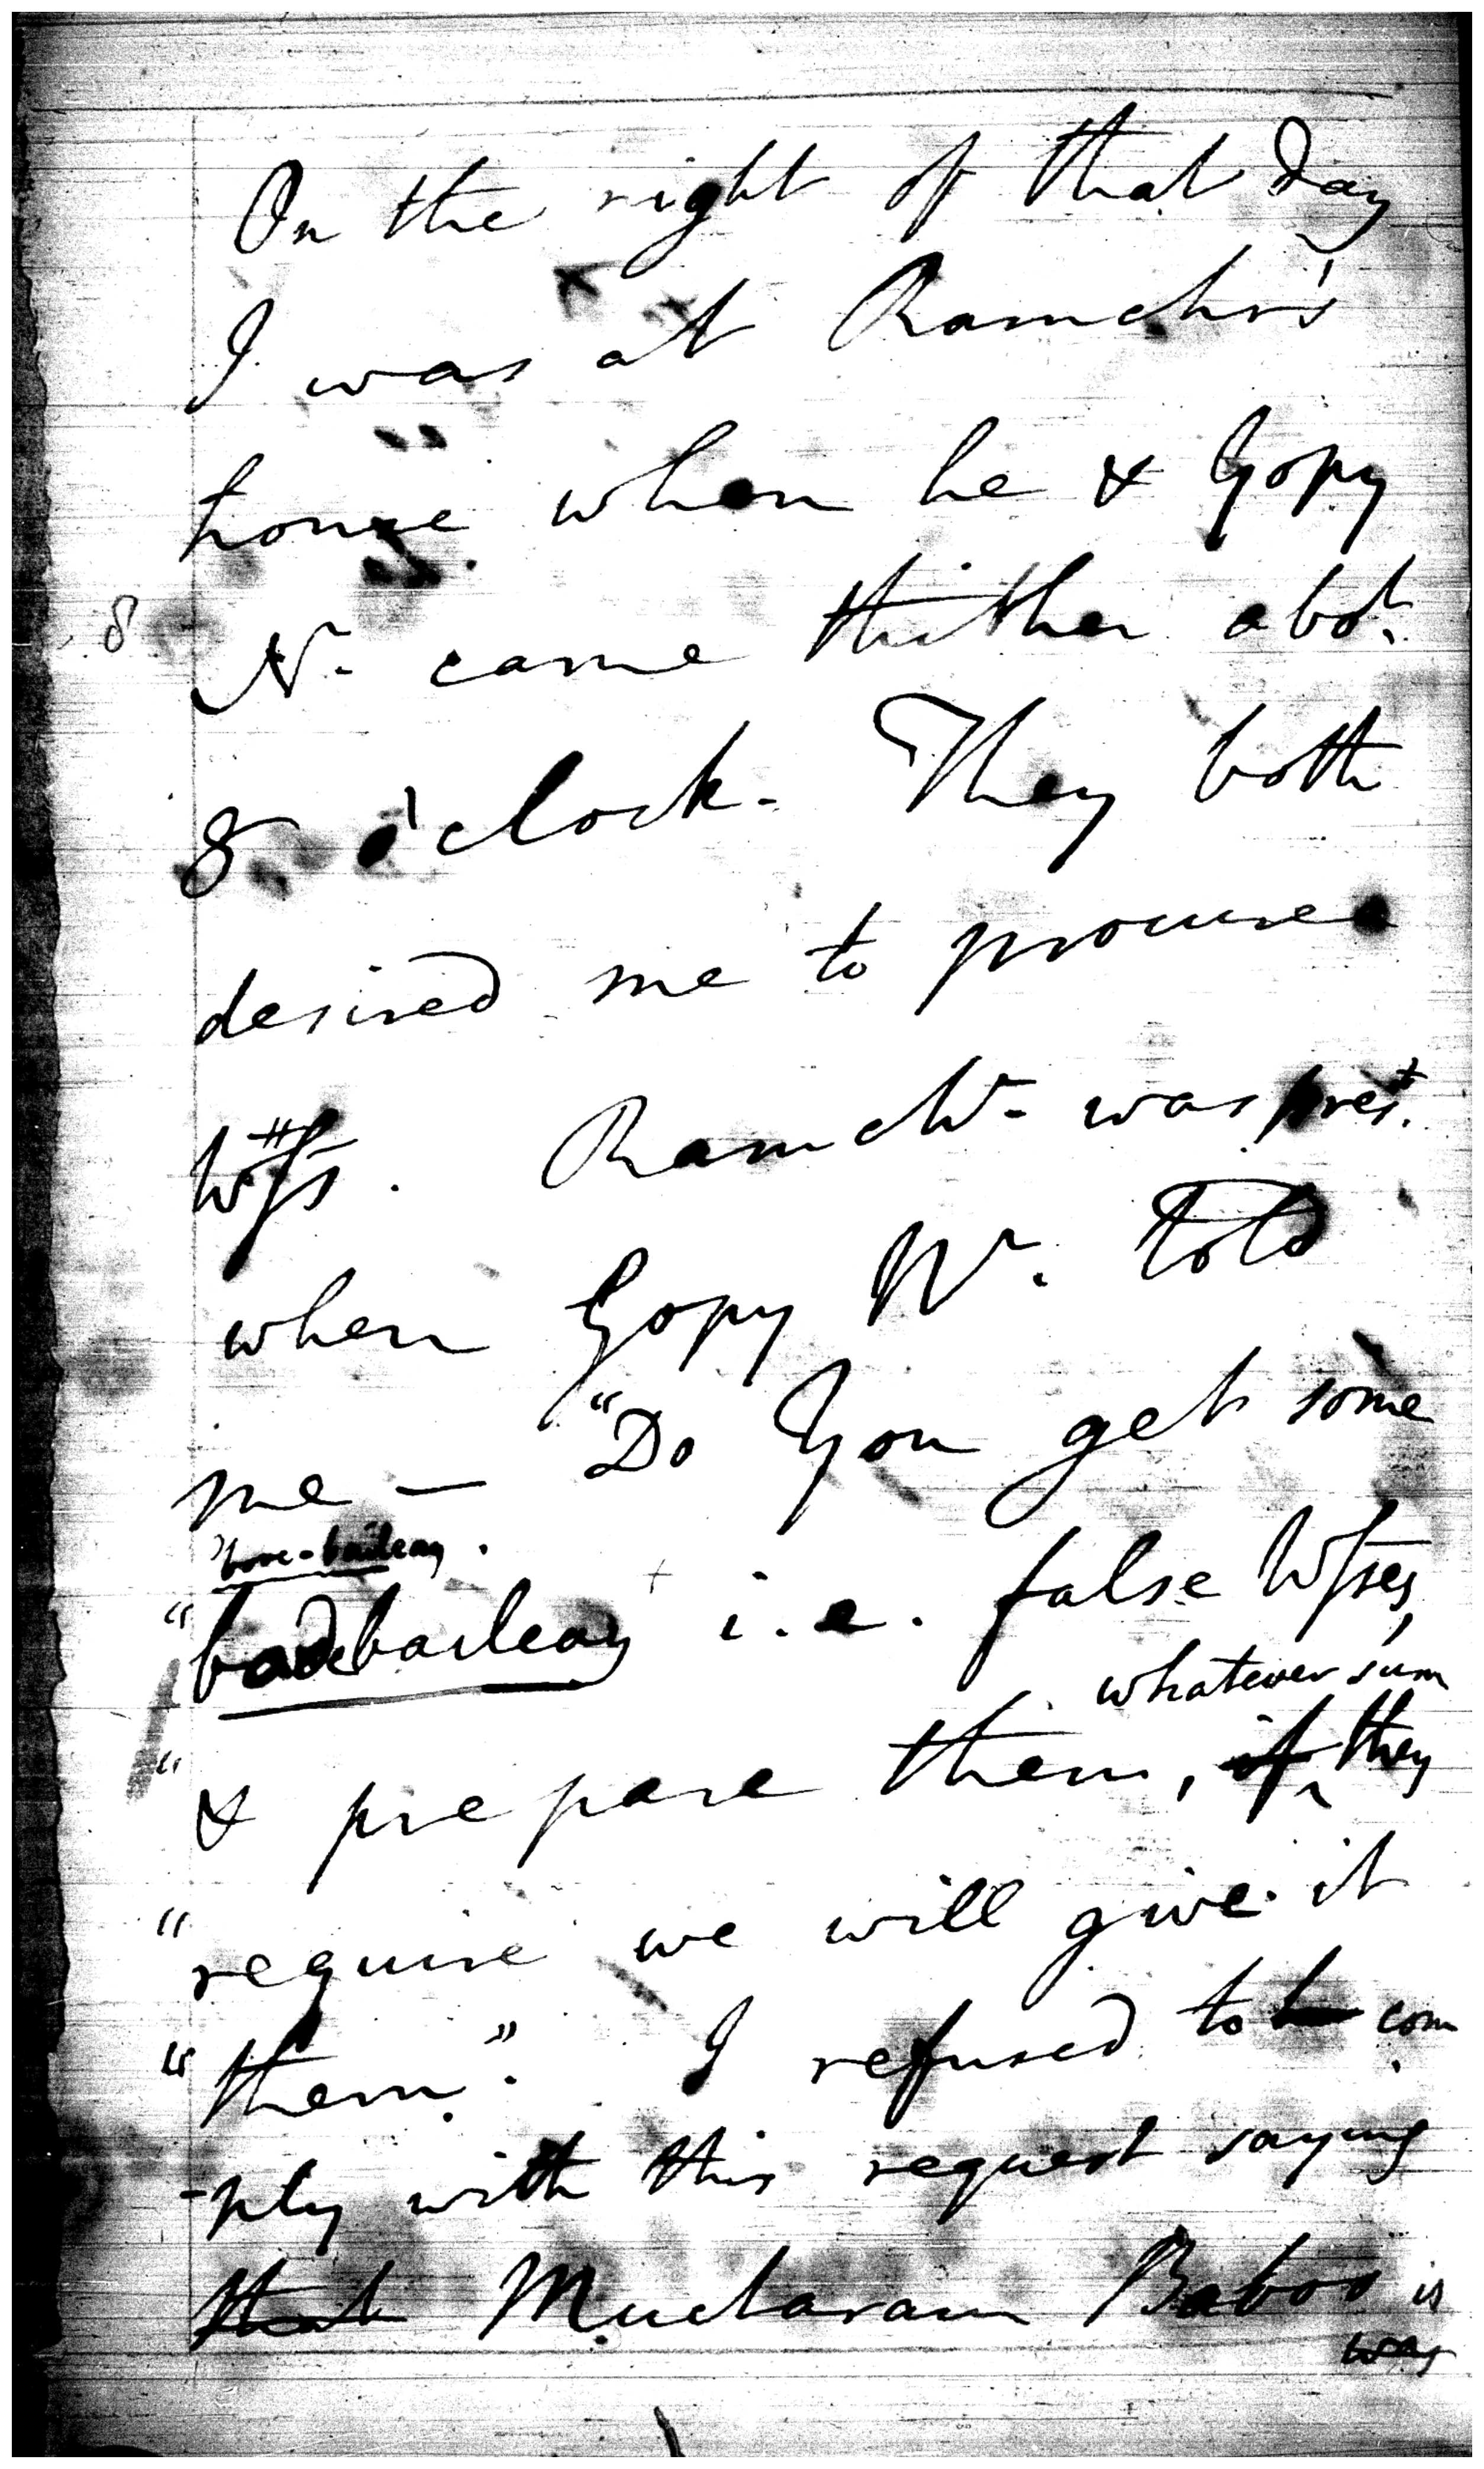 On the night of that day
I was at Ramchr's
house when he & Gopy
8
Nr. came thither abot.
8 o'clock. They both
desired me to procure
Wtss. Ramchr. was prest.
when Gopy Nr. told
me — "Do You get some
"badebarleay i.e. false Wsses,
whatever sum
"& prepare them, if they
"require we will give it
"them". I refused to com
-ply with this request saying
that Muctaram Baboo is
was